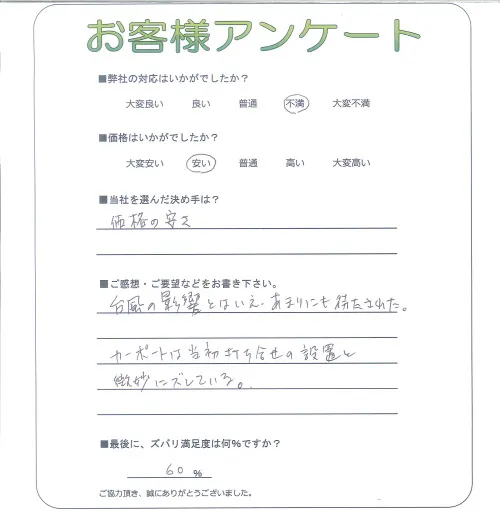 お客様アンケート
■弊社の対応はいかがでしたか?
大変良い 良い 普通 不満 大変不満
■価格はいかがでしたか?
大変安い 安い 普通 高い 大変高い
■当社を選んだ決め手は?
価格の安さ
■ご感想・ご要望などをお書き下さい。
台風の影響とはいえ、あまりにも待たされた。
カーポートは当初打ち合せの設置と
微妙にズレている。
■最後に、ズバリ満足度は何%ですか?
60 %
ご協力頂き、誠にありがとうございました。